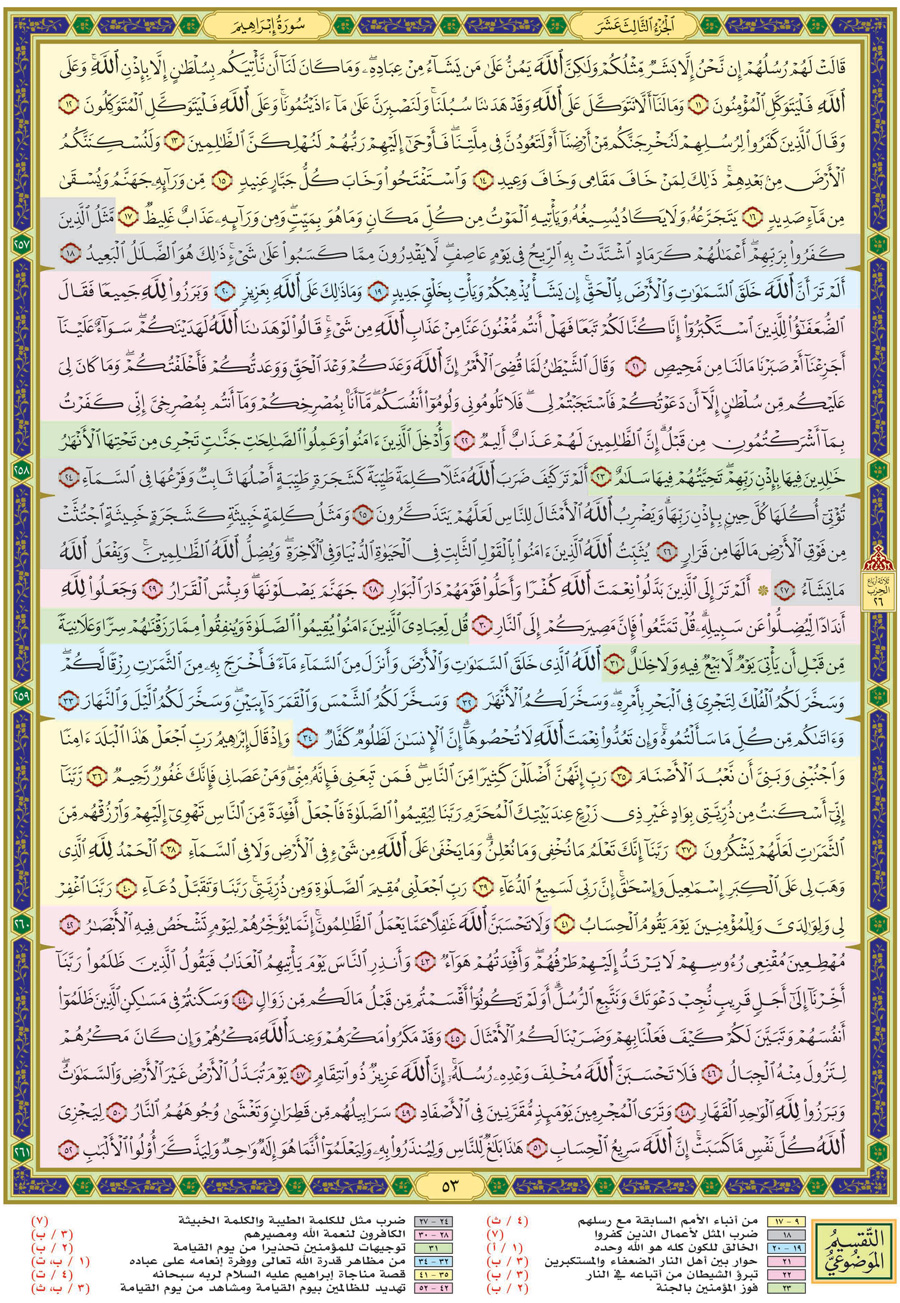 الجُزْءُ الثَّالِثَ عَشَرَ
سُورَةُ إِبْرَاهِيم
قَالَتْ لَهُمْ رُسُلُهُمْ إِن نَّحْنُ إِلَّا بَشَرٌ مِّثْلُكُمْ وَلَٰكِنَّ ٱللَّهَ يَمُنُّ عَلَىٰ مَن يَشَآءُ مِنْ عِبَادِهِۦ ۖ وَمَا كَانَ لَنَآ أَن نَّأْتِيَكُم بِسُلْطَٰنٍ إِلَّا بِإِذْنِ ٱللَّهِ ۚ وَعَلَى
ٱللَّهِ فَلْيَتَوَكَّلِ ٱلْمُؤْمِنُونَ ١١ وَمَا لَنَآ أَلَّا نَتَوَكَّلَ عَلَى ٱللَّهِ وَقَدْ هَدَىٰنَا سُبُلَنَا ۚ وَلَنَصْبِرَنَّ عَلَىٰ مَآ ءَاذَيْتُمُونَا ۚ وَعَلَى ٱللَّهِ فَلْيَتَوَكَّلِ ٱلْمُتَوَكِّلُونَ ١٢
وَقَالَ ٱلَّذِينَ كَفَرُوا۟ لِرُسُلِهِمْ لَنُخْرِجَنَّكُم مِّنْ أَرْضِنَآ أَوْ لَتَعُودُنَّ فِى مِلَّتِنَا ۖ فَأَوْحَىٰٓ إِلَيْهِمْ رَبُّهُمْ لَنُهْلِكَنَّ ٱلظَّٰلِمِينَ ١٣ وَلَنُسْكِنَنَّكُمُ
ٱلْأَرْضَ مِنۢ بَعْدِهِمْ ۚ ذَٰلِكَ لِمَنْ خَافَ مَقَامِى وَخَافَ وَعِيدِ ١٤ وَٱسْتَفْتَحُوا۟ وَخَابَ كُلُّ جَبَّارٍ عَنِيدٍ ١٥ مِّن وَرَآئِهِۦ جَهَنَّمُ وَيُسْقَىٰ
مِن مَّآءٍ صَدِيدٍ ١٦ يَتَجَرَّعُهُۥ وَلَا يَكَادُ يُسِيغُهُۥ وَيَأْتِيهِ ٱلْمَوْتُ مِن كُلِّ مَكَانٍ وَمَا هُوَ بِمَيِّتٍ ۖ وَمِن وَرَآئِهِۦ عَذَابٌ غَلِيظٌ ١٧ مَّثَلُ ٱلَّذِينَ
كَفَرُوا۟ بِرَبِّهِمْ ۖ أَعْمَٰلُهُمْ كَرَمَادٍ ٱشْتَدَّتْ بِهِ ٱلرِّيحُ فِى يَوْمٍ عَاصِفٍ ۖ لَّا يَقْدِرُونَ مِمَّا كَسَبُوا۟ عَلَىٰ شَىْءٍ ۚ ذَٰلِكَ هُوَ ٱلضَّلَٰلُ ٱلْبَعِيدُ ١٨
أَلَمْ تَرَ أَنَّ ٱللَّهَ خَلَقَ ٱلسَّمَٰوَٰتِ وَٱلْأَرْضَ بِٱلْحَقِّ ۚ إِن يَشَأْ يُذْهِبْكُمْ وَيَأْتِ بِخَلْقٍ جَدِيدٍ ١٩ وَمَا ذَٰلِكَ عَلَى ٱللَّهِ بِعَزِيزٍ ٢٠ وَبَرَزُوا۟ لِلَّهِ جَمِيعًا فَقَالَ
ٱلضُّعَفَٰٓؤُا۟ لِلَّذِينَ ٱسْتَكْبَرُوٓا۟ إِنَّا كُنَّا لَكُمْ تَبَعًا فَهَلْ أَنتُم مُّغْنُونَ عَنَّا مِنْ عَذَابِ ٱللَّهِ مِن شَىْءٍ ۚ قَالُوا۟ لَوْ هَدَىٰنَا ٱللَّهُ لَهَدَيْنَٰكُمْ ۖ سَوَآءٌ عَلَيْنَآ
أَجَزِعْنَآ أَمْ صَبَرْنَا مَا لَنَا مِن مَّحِيصٍ ٢١ وَقَالَ ٱلشَّيْطَٰنُ لَمَّا قُضِىَ ٱلْأَمْرُ إِنَّ ٱللَّهَ وَعَدَكُمْ وَعْدَ ٱلْحَقِّ وَوَعَدتُّكُمْ فَأَخْلَفْتُكُمْ ۖ وَمَا كَانَ لِىَ
عَلَيْكُم مِّن سُلْطَٰنٍ إِلَّآ أَن دَعَوْتُكُمْ فَٱسْتَجَبْتُمْ لِى ۖ فَلَا تَلُومُونِى وَلُومُوٓا۟ أَنفُسَكُم ۖ مَّآ أَنَا۠ بِمُصْرِخِكُمْ وَمَآ أَنتُم بِمُصْرِخِىَّ ۖ إِنِّى كَفَرْتُ
بِمَآ أَشْرَكْتُمُونِ مِن قَبْلُ ۗ إِنَّ ٱلظَّٰلِمِينَ لَهُمْ عَذَابٌ أَلِيمٌ ٢٢ وَأُدْخِلَ ٱلَّذِينَ ءَامَنُوا۟ وَعَمِلُوا۟ ٱلصَّٰلِحَٰتِ جَنَّٰتٍ تَجْرِى مِن تَحْتِهَا ٱلْأَنْهَٰرُ
خَٰلِدِينَ فِيهَا بِإِذْنِ رَبِّهِمْ ۖ تَحِيَّتُهُمْ فِيهَا سَلَٰمٌ ٢٣ أَلَمْ تَرَ كَيْفَ ضَرَبَ ٱللَّهُ مَثَلًا كَلِمَةً طَيِّبَةً كَشَجَرَةٍ طَيِّبَةٍ أَصْلُهَا ثَابِتٌ وَفَرْعُهَا فِى ٱلسَّمَآءِ ٢٤
تُؤْتِىٓ أُكُلَهَا كُلَّ حِينٍۭ بِإِذْنِ رَبِّهَا ۗ وَيَضْرِبُ ٱللَّهُ ٱلْأَمْثَالَ لِلنَّاسِ لَعَلَّهُمْ يَتَذَكَّرُونَ ٢٥ وَمَثَلُ كَلِمَةٍ خَبِيثَةٍ كَشَجَرَةٍ خَبِيثَةٍ ٱجْتُثَّتْ
مِن فَوْقِ ٱلْأَرْضِ مَا لَهَا مِن قَرَارٍ ٢٦ يُثَبِّتُ ٱللَّهُ ٱلَّذِينَ ءَامَنُوا۟ بِٱلْقَوْلِ ٱلثَّابِتِ فِى ٱلْحَيَوٰةِ ٱلدُّنْيَا وَفِى ٱلْءَاخِرَةِ ۖ وَيُضِلُّ ٱللَّهُ ٱلظَّٰلِمِينَ ۚ وَيَفْعَلُ ٱللَّهُ
مَا يَشَآءُ ٢٧ ۞ أَلَمْ تَرَ إِلَى ٱلَّذِينَ بَدَّلُوا۟ نِعْمَتَ ٱللَّهِ كُفْرًا وَأَحَلُّوا۟ قَوْمَهُمْ دَارَ ٱلْبَوَارِ ٢٨ جَهَنَّمَ يَصْلَوْنَهَا ۖ وَبِئْسَ ٱلْقَرَارُ ٢٩ وَجَعَلُوا۟ لِلَّهِ
أَندَادًا لِّيُضِلُّوا۟ عَن سَبِيلِهِۦ ۗ قُلْ تَمَتَّعُوا۟ فَإِنَّ مَصِيرَكُمْ إِلَى ٱلنَّارِ ٣٠ قُل لِّعِبَادِىَ ٱلَّذِينَ ءَامَنُوا۟ يُقِيمُوا۟ ٱلصَّلَوٰةَ وَيُنفِقُوا۟ مِمَّا رَزَقْنَٰهُمْ سِرًّا وَعَلَانِيَةً
مِّن قَبْلِ أَن يَأْتِىَ يَوْمٌ لَّا بَيْعٌ فِيهِ وَلَا خِلَٰلٌ ٣١ ٱللَّهُ ٱلَّذِى خَلَقَ ٱلسَّمَٰوَٰتِ وَٱلْأَرْضَ وَأَنزَلَ مِنَ ٱلسَّمَآءِ مَآءً فَأَخْرَجَ بِهِۦ مِنَ ٱلثَّمَرَٰتِ رِزْقًا لَّكُمْ ۖ
وَسَخَّرَ لَكُمُ ٱلْفُلْكَ لِتَجْرِىَ فِى ٱلْبَحْرِ بِأَمْرِهِۦ ۖ وَسَخَّرَ لَكُمُ ٱلْأَنْهَٰرَ ٣٢ وَسَخَّرَ لَكُمُ ٱلشَّمْسَ وَٱلْقَمَرَ دَآئِبَيْنِ ۖ وَسَخَّرَ لَكُمُ ٱلَّيْلَ وَٱلنَّهَارَ ٣٣
وَءَاتَىٰكُم مِّن كُلِّ مَا سَأَلْتُمُوهُ ۚ وَإِن تَعُدُّوا۟ نِعْمَتَ ٱللَّهِ لَا تُحْصُوهَآ ۗ إِنَّ ٱلْإِنسَٰنَ لَظَلُومٌ كَفَّارٌ ٣٤ وَإِذْ قَالَ إِبْرَٰهِيمُ رَبِّ ٱجْعَلْ هَٰذَا ٱلْبَلَدَ ءَامِنًا
وَٱجْنُبْنِى وَبَنِىَّ أَن نَّعْبُدَ ٱلْأَصْنَامَ ٣٥ رَبِّ إِنَّهُنَّ أَضْلَلْنَ كَثِيرًا مِّنَ ٱلنَّاسِ ۖ فَمَن تَبِعَنِى فَإِنَّهُۥ مِنِّى ۖ وَمَنْ عَصَانِى فَإِنَّكَ غَفُورٌ رَّحِيمٌ ٣٦ رَّبَّنَآ
إِنِّىٓ أَسْكَنتُ مِن ذُرِّيَّتِى بِوَادٍ غَيْرِ ذِى زَرْعٍ عِندَ بَيْتِكَ ٱلْمُحَرَّمِ رَبَّنَا لِيُقِيمُوا۟ ٱلصَّلَوٰةَ فَٱجْعَلْ أَفْـِٔدَةً مِّنَ ٱلنَّاسِ تَهْوِىٓ إِلَيْهِمْ وَٱرْزُقْهُم مِّنَ
ٱلثَّمَرَٰتِ لَعَلَّهُمْ يَشْكُرُونَ ٣٧ رَبَّنَآ إِنَّكَ تَعْلَمُ مَا نُخْفِى وَمَا نُعْلِنُ ۗ وَمَا يَخْفَىٰ عَلَى ٱللَّهِ مِن شَىْءٍ فِى ٱلْأَرْضِ وَلَا فِى ٱلسَّمَآءِ ٣٨ ٱلْحَمْدُ لِلَّهِ ٱلَّذِى
وَهَبَ لِى عَلَى ٱلْكِبَرِ إِسْمَٰعِيلَ وَإِسْحَٰقَ ۚ إِنَّ رَبِّى لَسَمِيعُ ٱلدُّعَآءِ ٣٩ رَبِّ ٱجْعَلْنِى مُقِيمَ ٱلصَّلَوٰةِ وَمِن ذُرِّيَّتِى ۚ رَبَّنَا وَتَقَبَّلْ دُعَآءِ ٤٠ رَبَّنَا ٱغْفِرْ
لِى وَلِوَٰلِدَىَّ وَلِلْمُؤْمِنِينَ يَوْمَ يَقُومُ ٱلْحِسَابُ ٤١ وَلَا تَحْسَبَنَّ ٱللَّهَ غَٰفِلًا عَمَّا يَعْمَلُ ٱلظَّٰلِمُونَ ۚ إِنَّمَا يُؤَخِّرُهُمْ لِيَوْمٍ تَشْخَصُ فِيهِ ٱلْأَبْصَٰرُ ٤٢
مُهْطِعِينَ مُقْنِعِى رُءُوسِهِمْ لَا يَرْتَدُّ إِلَيْهِمْ طَرْفُهُمْ ۖ وَأَفْـِٔدَتُهُمْ هَوَآءٌ ٤٣ وَأَنذِرِ ٱلنَّاسَ يَوْمَ يَأْتِيهِمُ ٱلْعَذَابُ فَيَقُولُ ٱلَّذِينَ ظَلَمُوا۟ رَبَّنَآ
أَخِّرْنَآ إِلَىٰٓ أَجَلٍ قَرِيبٍ نُّجِبْ دَعْوَتَكَ وَنَتَّبِعِ ٱلرُّسُلَ ۗ أَوَلَمْ تَكُونُوٓا۟ أَقْسَمْتُم مِّن قَبْلُ مَا لَكُم مِّن زَوَالٍ ٤٤ وَسَكَنتُمْ فِى مَسَٰكِنِ ٱلَّذِينَ ظَلَمُوٓا۟
أَنفُسَهُمْ وَتَبَيَّنَ لَكُمْ كَيْفَ فَعَلْنَا بِهِمْ وَضَرَبْنَا لَكُمُ ٱلْأَمْثَالَ ٤٥ وَقَدْ مَكَرُوا۟ مَكْرَهُمْ وَعِندَ ٱللَّهِ مَكْرُهُمْ وَإِن كَانَ مَكْرُهُمْ
لِتَزُولَ مِنْهُ ٱلْجِبَالُ ٤٦ فَلَا تَحْسَبَنَّ ٱللَّهَ مُخْلِفَ وَعْدِهِۦ رُسُلَهُۥٓ ۗ إِنَّ ٱللَّهَ عَزِيزٌ ذُو ٱنتِقَامٍ ٤٧ يَوْمَ تُبَدَّلُ ٱلْأَرْضُ غَيْرَ ٱلْأَرْضِ وَٱلسَّمَٰوَٰتُ ۖ
وَبَرَزُوا۟ لِلَّهِ ٱلْوَٰحِدِ ٱلْقَهَّارِ ٤٨ وَتَرَى ٱلْمُجْرِمِينَ يَوْمَئِذٍ مُّقَرَّنِينَ فِى ٱلْأَصْفَادِ ٤٩ سَرَابِيلُهُم مِّن قَطِرَانٍ وَتَغْشَىٰ وُجُوهَهُمُ ٱلنَّارُ ٥٠ لِيَجْزِىَ
ٱللَّهُ كُلَّ نَفْسٍ مَّا كَسَبَتْ ۚ إِنَّ ٱللَّهَ سَرِيعُ ٱلْحِسَابِ ٥١ هَٰذَا بَلَٰغٌ لِّلنَّاسِ وَلِيُنذَرُوا۟ بِهِۦ وَلِيَعْلَمُوٓا۟ أَنَّمَا هُوَ إِلَٰهٌ وَٰحِدٌ وَلِيَذَّكَّرَ أُو۟لُوا۟ ٱلْأَلْبَٰبِ ٥٢
٢٥٧
٢٥٨
٢٥٩
٢٦٠
٢٦١
ثلاثة أرباع
الحزب
٢٦
٥٣
التَّقْسِيمُ
المَوْضُوعِيُّ
٩ - ١٧ من أنباء الأمم السابقة مع رسلهم (٤ / ث)
١٨ ضرب المثل لأعمال الذين كفروا (٧)
١٩ - ٢٠ الخالق للكون كله هو الله وحده (١ / أ)
٢١ حوار بين أهل النار الضعفاء والمستكبرين (٣ / ب)
٢٢ تبرؤ الشيطان من أتباعه في النار (٣ / ب)
٢٣ فوز المؤمنين بالجنة (٢ / ب)
٢٤ - ٢٧ ضرب مثل للكلمة الطيبة والكلمة الخبيثة (٧)
٢٨ - ٣٠ الكافرون لنعمة الله ومصيرهم (٣ / ب)
٣١ توجيهات للمؤمنين تحذيرا من يوم القيامة (٢ / ب)
٣٢ - ٣٤ من مظاهر قدرة الله تعالى ووفرة إنعامه على عباده (١ / ب، ت)
٣٥ - ٤١ قصة مناجاة إبراهيم عليه السلام لربه سبحانه (٤ / ت)
٤٢ - ٥٢ تهديد للظالمين بيوم القيامة ومشاهد من يوم القيامة (٣ / ب، ث)